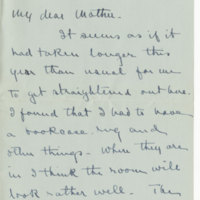 My dear Mother.
It seems as if it
had taken longer this
year than usual for me
to get straightened out here.
I found that I had to have
a bookcase, rug and
other things. When they are
in I think the room will
look rather well. The